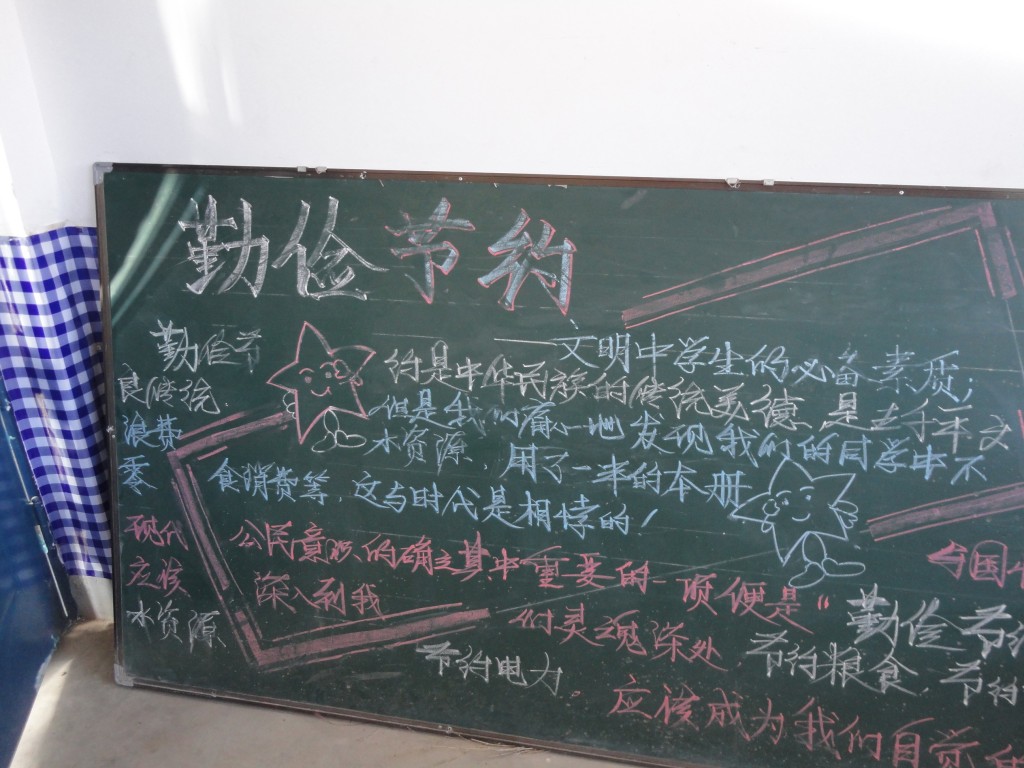 勤俭节约
勤俭节约是中华民族的传统美德，是去千年文
——文明中学生的必备素质；
良傳统.
但是我们痛心地发现我们的同学中不
浪费水资源、用了一半的本册
零食消费等.这与时代是相悖的！
现代公民意识的确立其中重要的一项便是“勤俭节约
全国
应该深入到我们灵魂深处
节约粮食、节约
水资源
节约电力.
应该成为我们自觉的